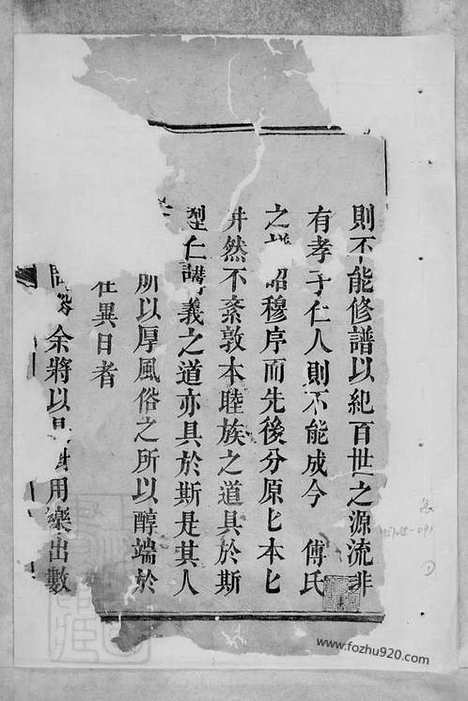 則不能修譜以紀百世之源流非
有孝子仁人則不能成今 傅氏
之 昭穆序而先後分原匕本匕
井然不紊敦本睦族之道具於斯
型仁講義之道亦具於斯是其人
所以厚風俗之所以醇端於
在異日者
余將以 用樂出數
www.fozhu920.com